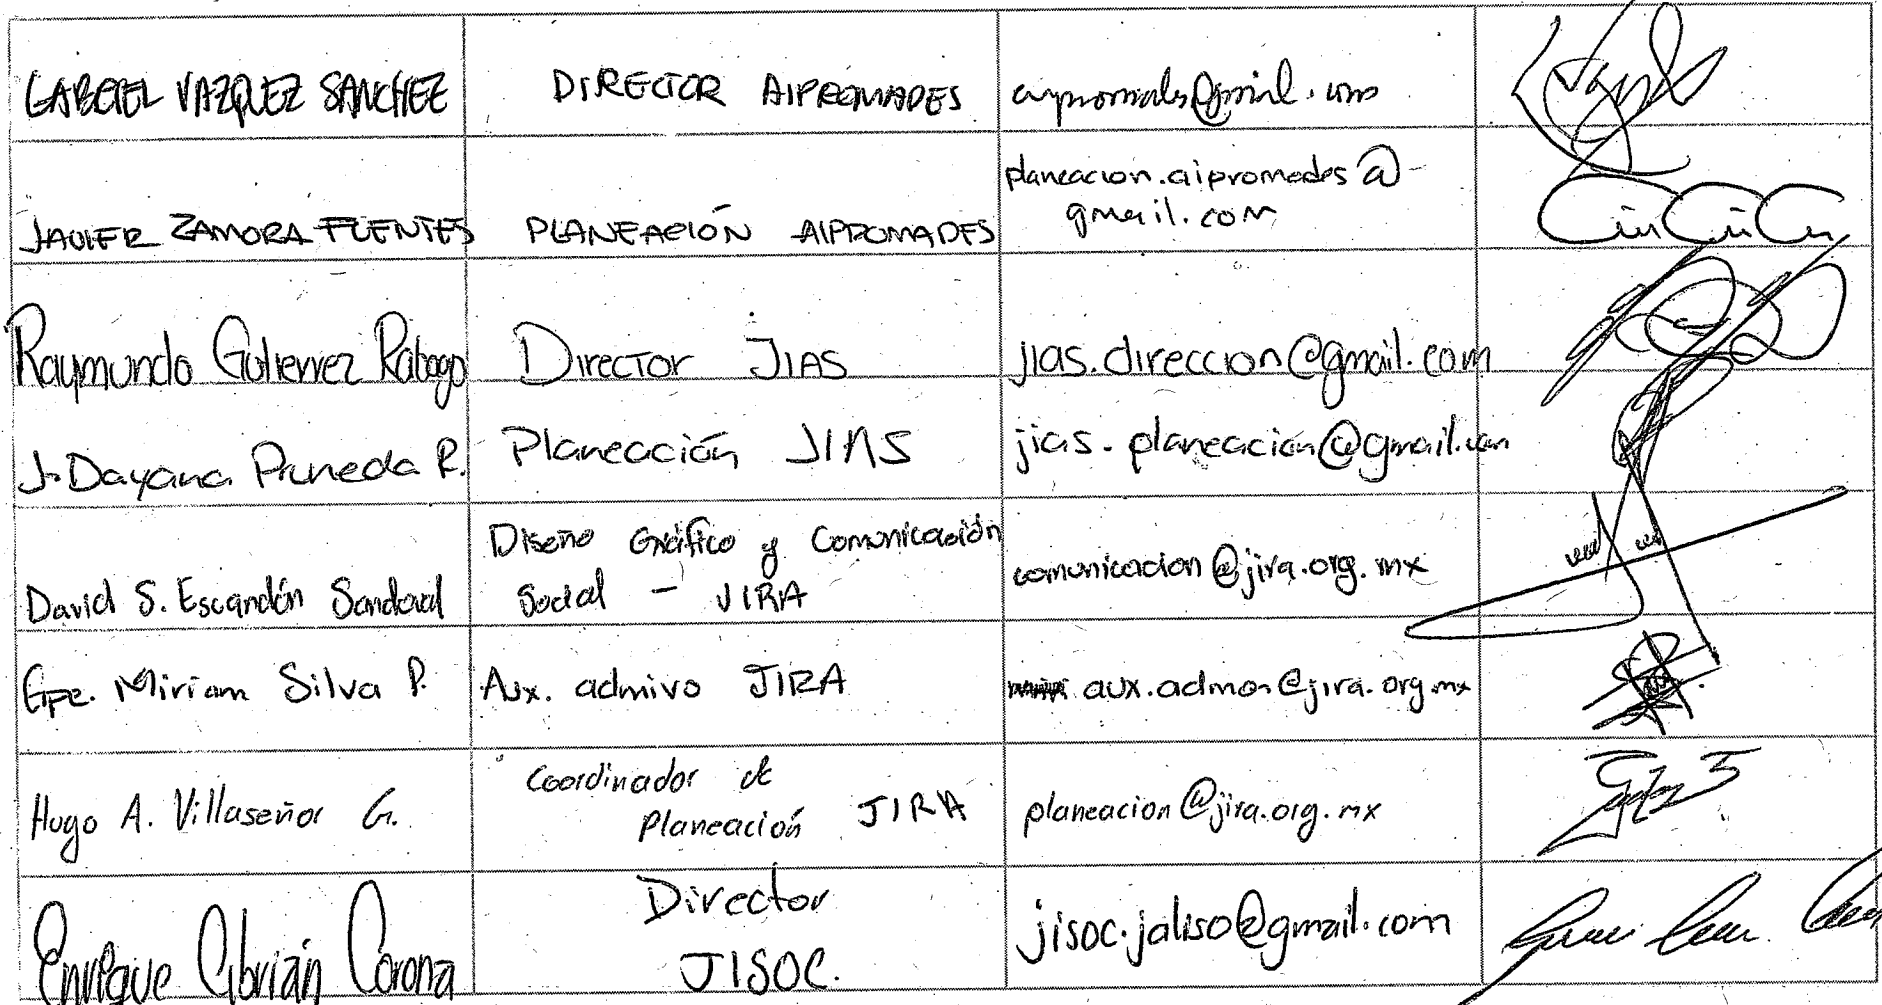 GABRIEL VAZQUEZ SANCHEZ
DIRECTOR AIPROMADES
aipromades@gmail.com
JAVIER ZAMORA FUENTES
PLANEACIÓN AIPROMADES
planeacion.aipromades@
gmail.com
Raymundo Gutierrez Rábago
Director JIAS
jias.direccion@gmail.com
J. Dayana Pruneda R.
Planeación JIAS
jias.planeación@gmail.com
David S. Escandón Sandoval
Diseño Gráfico y Comunicación
Social - JIRA
comunicacion@jira.org.mx
Gpe. Miriam Silva P.
Aux. admivo JIRA
aux.admon@jira.org.mx
Hugo A. Villaseñor G.
Coordinador de
Planeación JIRA
planeacion@jira.org.mx
Enrique Cibrián Corona
Director
JISOC.
jisoc.jaliso@gmail.com